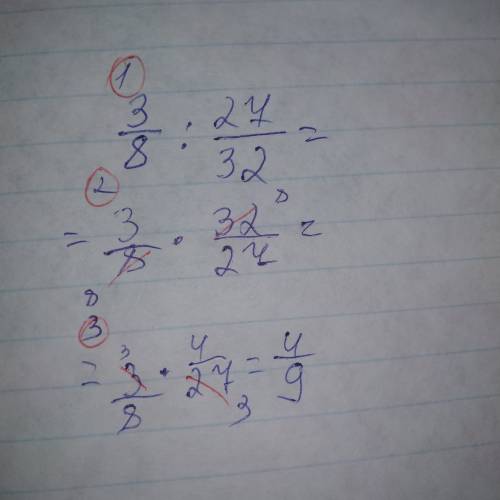 1
3/8 : 27/32 =
2
= 3/8 · 32/27 = 8
8
3
= 3/8 · 4/27 = 4/9
3 3